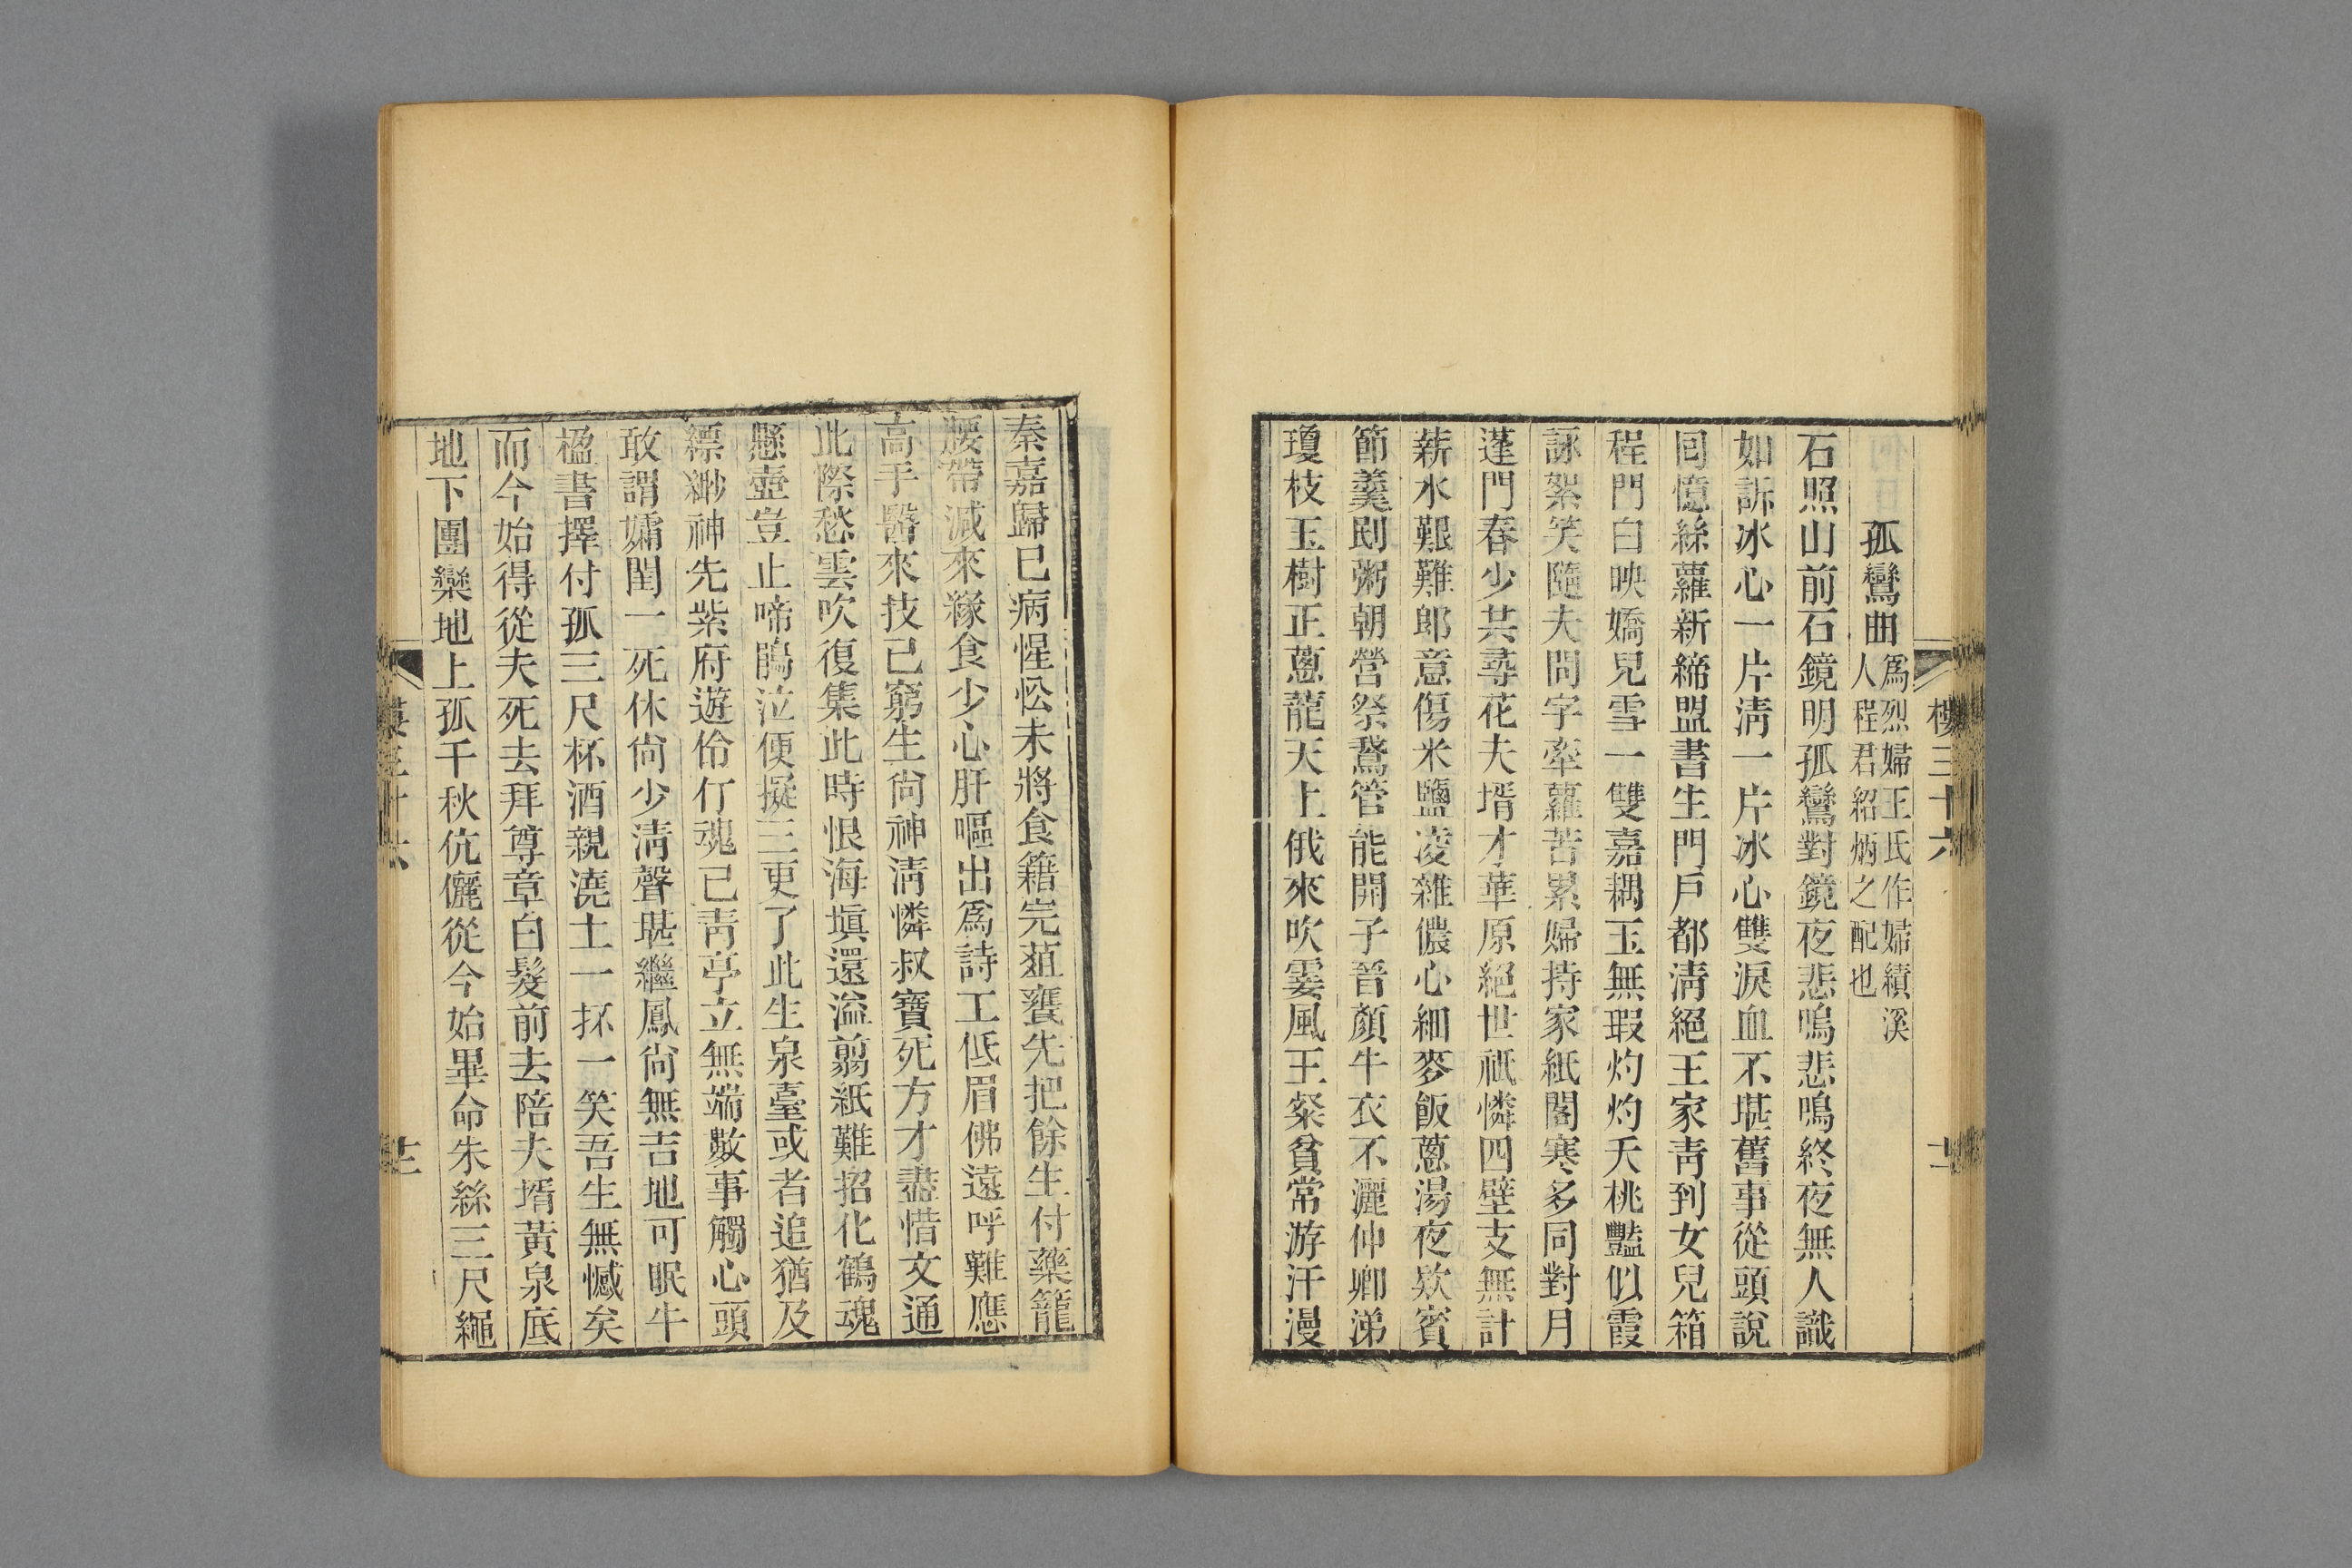 孤鸞曲為烈婦王氏作婦績溪
人程君紹炳之配也
石照山前石鏡明孤鸞對鏡夜悲鳴悲鳴終夜無人識
如訴冰心一片清一片冰心雙淚血不堪舊事從頭說
囘憶絲蘿新締盟書生門戶都清絕王家靑到女兒箱
程門白映嬌兒雪一雙嘉耦玉無瑕灼灼夭桃豔似霞
詠絮笑隨夫問字牽蘿苦累婦持家紙閣寒多同對月
蓬門春少共尋花夫壻才華原絕世祇憐四壁支無計
薪水艱難郎意傷米鹽凌雜儂心細麥飯蔥湯夜欵賓
節羹剔粥朝營祭鵞管能開子晉顏牛衣不灑仲卿涕
瓊枝玉樹正蔥蘢天上俄來吹霎風王粲貧常游汗漫
秦嘉歸已病惺忪未將食籍完葅甕先把餘生付藥籠
腰帶減來緣食少心肝嘔出爲詩工低眉佛遠呼難應
高手醫來技已窮生尙神清憐叔寶死方才盡惜文通
此際愁雲吹復集此時恨海塡還溢翦紙難招化鶴魂
懸壺豈止啼鵑泣便擬三更了此生泉臺或者追猶及
縹緲神先紫府遊伶仃魂已靑亭立無端數事觸心頭
敢謂孀閨一死休尙少清聲堪繼鳳尙無吉地可眠牛
楹書擇付孤三尺杯酒親澆土一抔一笑吾生無憾矣
而今始得從夫死去拜尊章白髮前去陪夫壻黃泉底
地下團欒地上孤千秋伉儷從今始畢命朱絲三尺繩
樓三十六